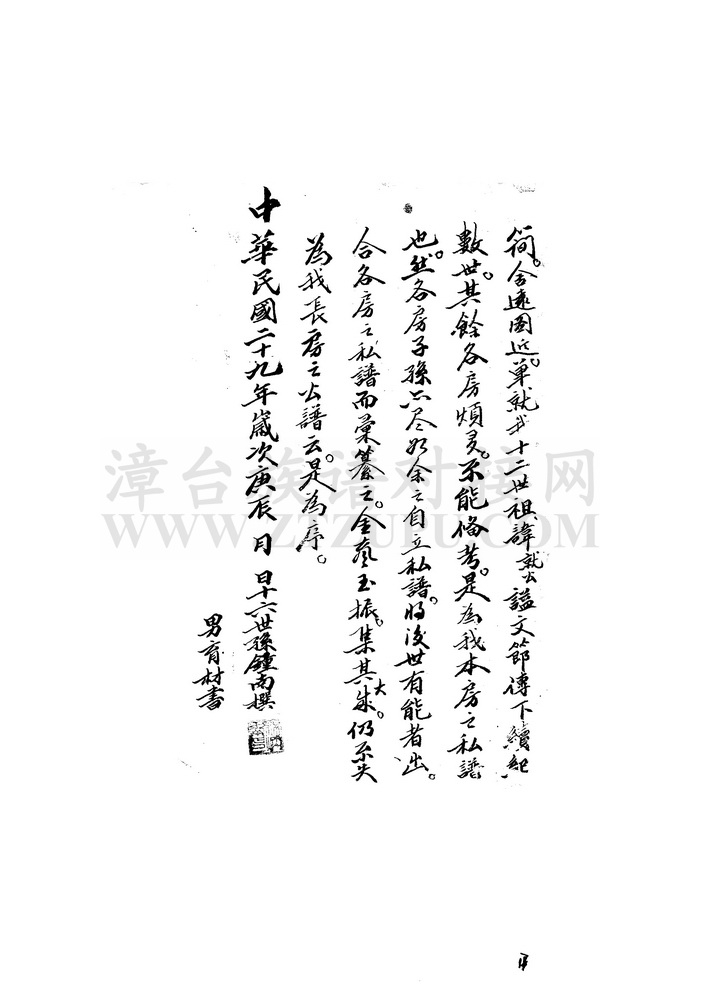 簡。舍遠圖近。单就我十二世祖諱就公謚文節傳下續紀
數世。其餘各房煩多。不能俻考。是為我本房之私譜
也。然各房子孫亦尽如余之自立私譜。將後世有能者出。
合各房之私譜而彙纂之。金聲玉振。集其大成。仍不失
為我長房之公譜云。是為序。
中華民國二十九年歲次庚辰 月 日十六世孫鍾南撰
男育材書
漳台族谱对接网
WWW.ZTZUPU.COM